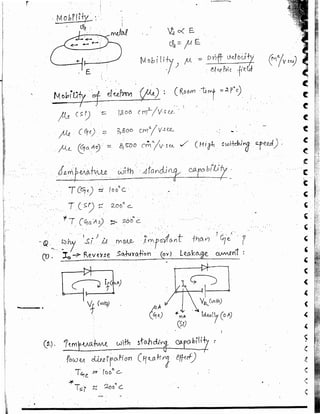 Mobility :
metal
E
Vd ∝ E
Vd = μ E
Mobility, μ = Drift velocity / electric field (m²/v sec)
Mobility of electron (μe) : (Room temp = 27°c)
μe (Si) = 1300 cm²/V sec.
μe (Ge) = 3,800 cm²/V sec.
μe (GaAs) = 8,500 cm²/v sec ✓ (High switching speed).
temperature with standing capability.
T(Ge) ≈ 100°c
T(Si) ≈ 200°c
* T(GaAs) ≈ 200°c
Q. Why 'Si' is more important than 'Ge' ?
(1). Io → Reverse Saturation (or) Leakage current :
If (mA)
Vf (volts)
VR (volts)
μA (Ge)
nA (Si)
Ideally (0A)
(2). Temperature with standing capability :
Power dissipation (Heating effect)
TGe ≈ 100°c
* TSi ≈ 200°c